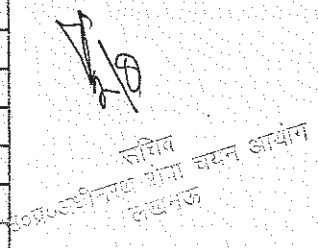 सचिव
उ०प्र०अधीनस्थ सेवा चयन आयोग
लखनऊ